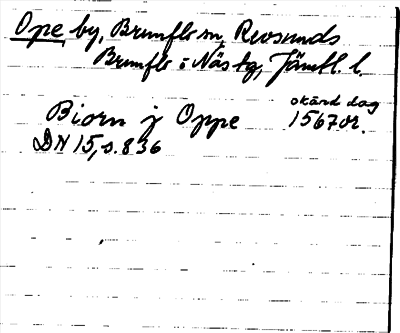 Ope, by, Brunflo sn, Revsunds
Brunflo o Näs tg, Jämtl. l.
okänd dag
Biorn j Oppe 1567 or.
DN 15, s. 836